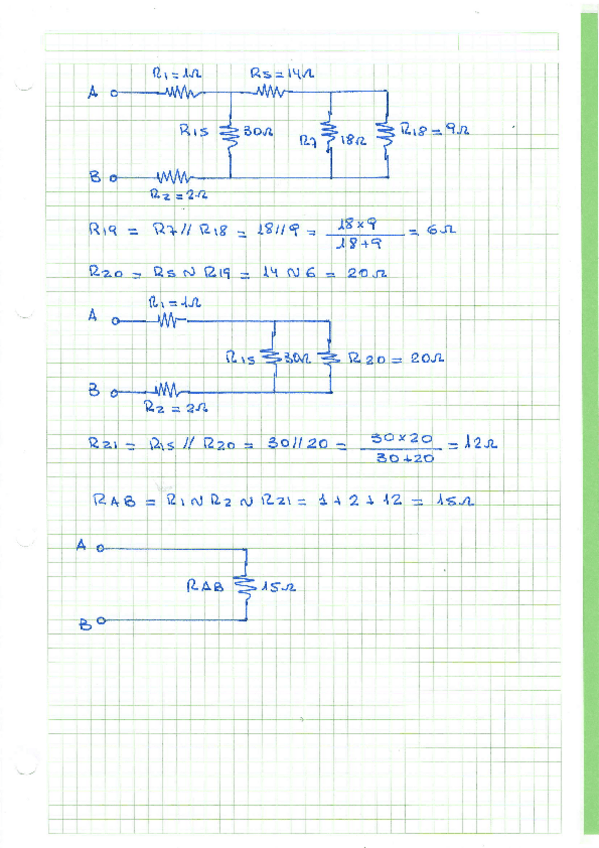 R1 = 1Ω R5 = 14Ω
A
R15 30Ω R7 18Ω R18 = 9Ω
B
R2 = 2Ω
R19 = R7 // R18 = 18//9 = 18×9 / 18+9 = 6Ω
R20 = R5 ~ R19 = 14 ~ 6 = 20Ω
R1 = 1Ω
A
R15 30Ω R20 = 20Ω
B
R2 = 2Ω
R21 = R15 // R20 = 30//20 = 30×20 / 30+20 = 12Ω
RAB = R1 ~ R2 ~ R21 = 1 + 2 + 12 = 15Ω
A
RAB 15Ω
B